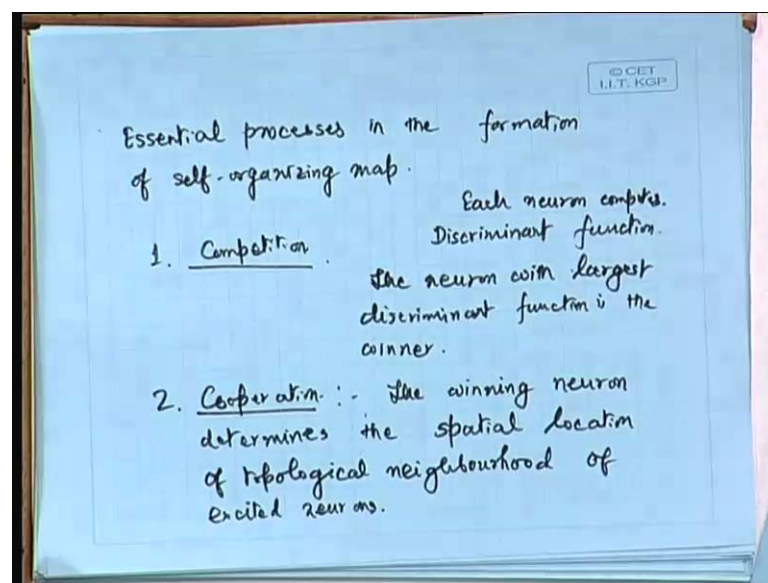 © CET
I.I.T. KGP
Essential processes in the formation
of self-organizing map.
Each neuron computes.
1. Competition. Discriminant function.
The neuron with largest
discriminant function is the
winner.
2. Cooperation :- The winning neuron
determines the spatial location
of topological neighbourhood of
excited neurons.